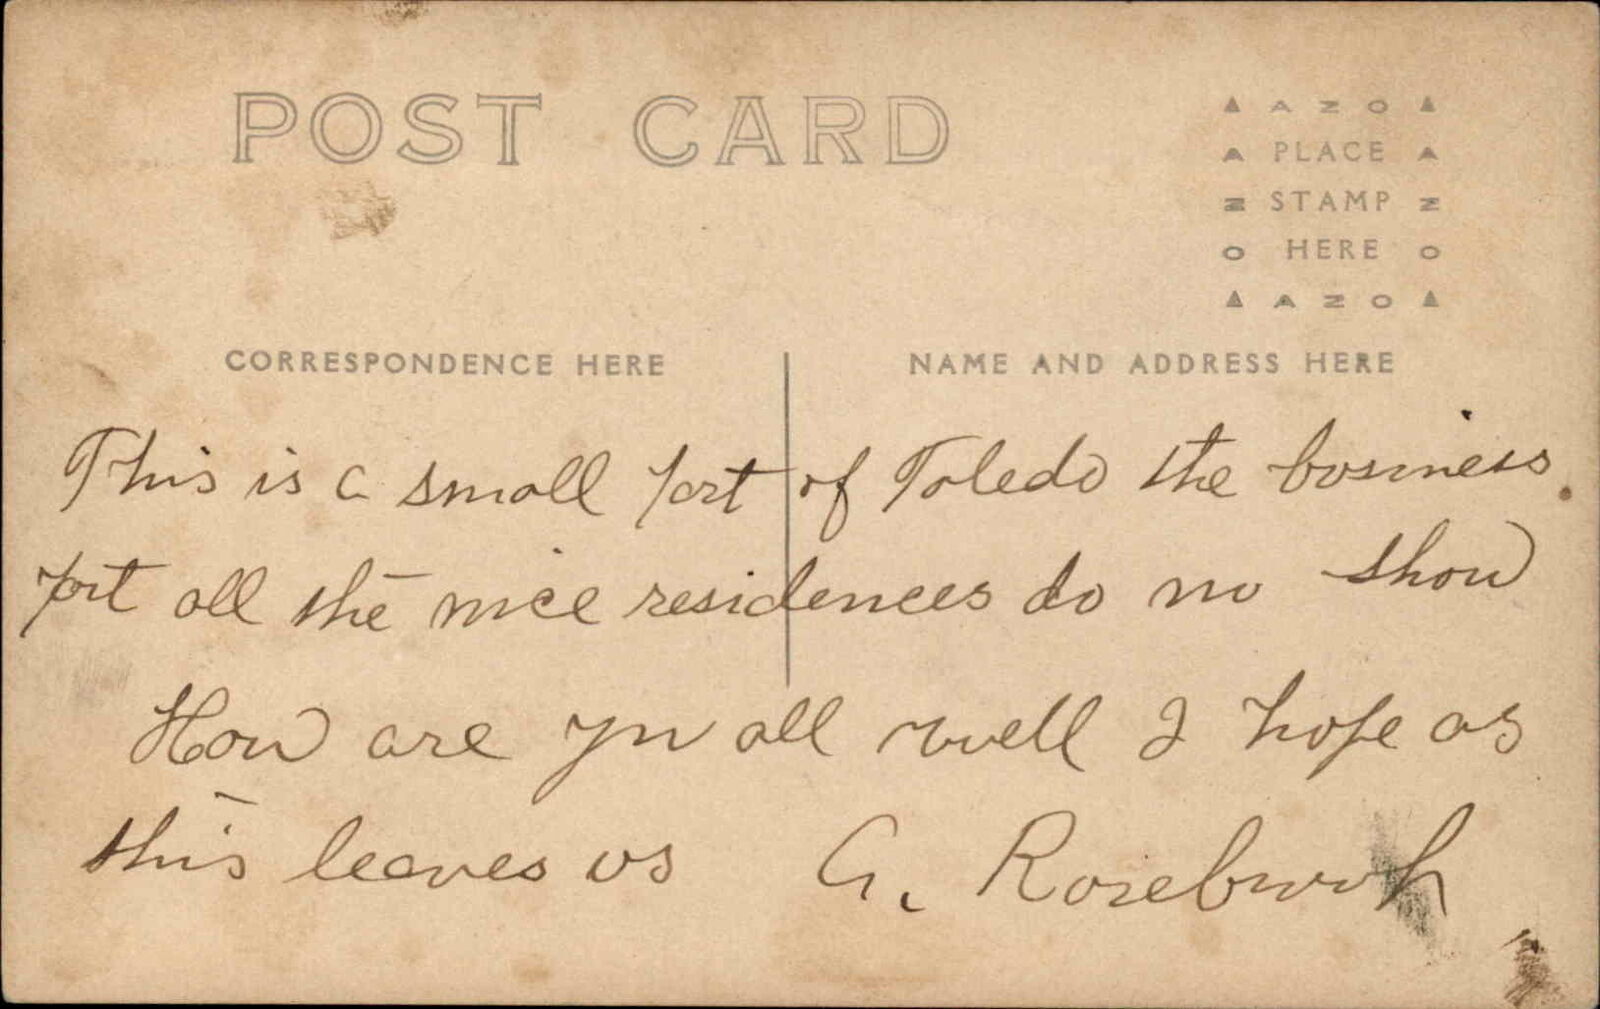 POST CARD
▲ A Z O ▲
A PLACE A
Z STAMP Z
O HERE O
▲ A Z O ▲
CORRESPONDENCE HERE
NAME AND ADDRESS HERE
This is a small part of Toledo the business
part all the nice residences do no show
How are you all well I hope as
this leaves us G. Rosebrush